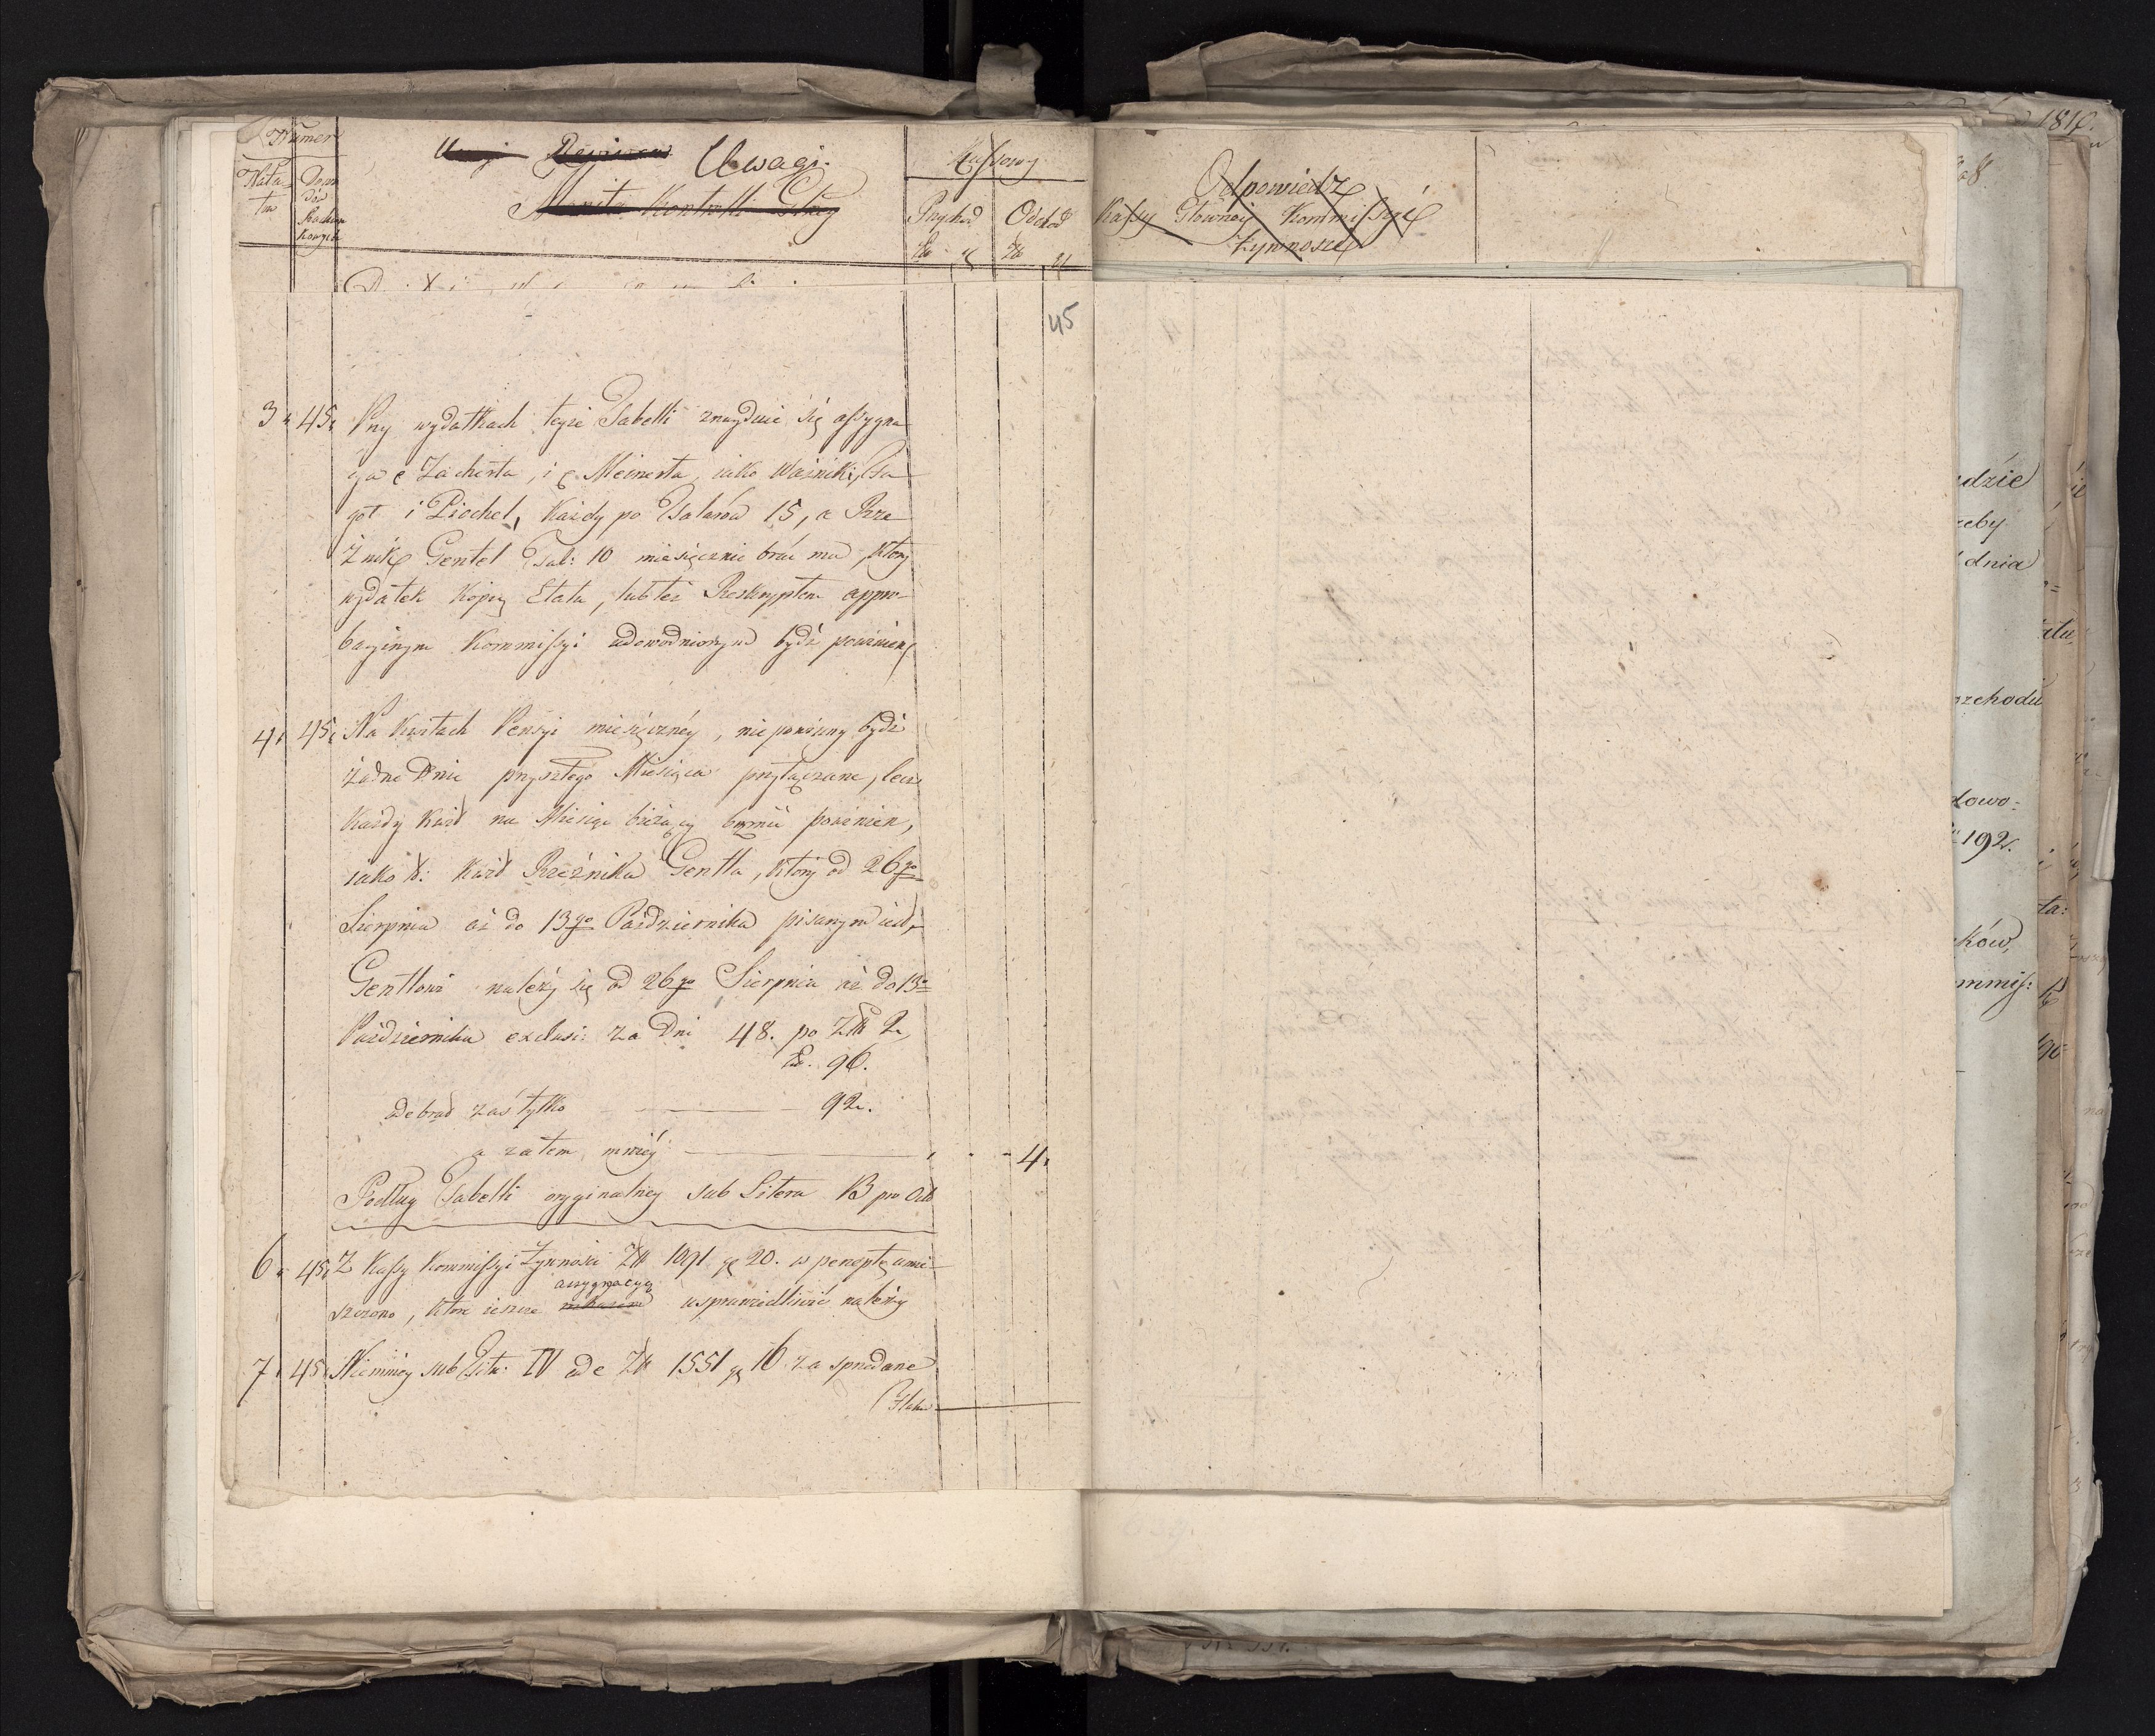 Numer
Nata
tów
Dowo
dów
Rachun
kowych
Uwagi.
Monita Kontrolli Głney
Kassowy
Przychod
Odchod
Odpowiedz
Kassy Głowney Kommissyi
Żywnosci
1810.
45
3. 45. Przy wydatkach teyże Tabelli znayduie się assygna
cya Zacherta, i Meinerta, iako Wazniki, Sa
got i Piochel, Każdy po Talarów 15, a Rze
źnik Gentel Tal: 10 miesięcznie brać ma, który
wydatek Kopią Etatu, lub też Reskryptem appro-
bacyinym Kommissyi udowodnionym bydź powinien
4. 45. Na Kwitach Pensyi miesięczney, nie powinny bydź
żadne Dnie przyszłego Miesiąca przyłączane, lecz
Każdy Kwit na Miesiąc bieżący brzmieć powinien,
iako t: Kwit Rzeźnika Gentla, który od 26go
Sierpnia aż do 13go Października pisanym iest,
Gentlowi należy się od 26go Sierpnia aż do 13o
Października exclusi: za Dni 48. po Zł 2.
Zł. 96.
odebrał zaś tylko 92.
a zatem mniéy 4.
Podług Tabelli oryginalney sub Litera B pro Octb
6. 45. Z Kassy Kommissyi Żywności Zł 1091 gr 20. w perceptę umie
assygnacyą
szczono, które ieszcze usprawiedliwić należy
7. 45. Niemniey sub Titu: IV ad e Zł 1551 gr 16 za sprzedane
dzie
żeby
dnia
rzchodu
dowo:
192.
ków,
mmiss: